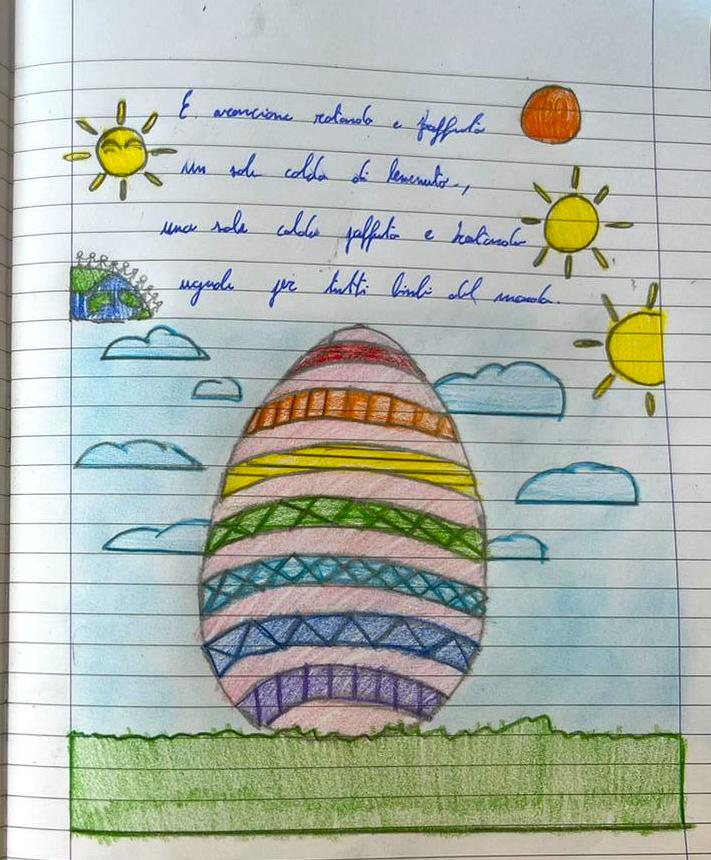 È arancione rotondo e paffuto
un sole caldo di benvenuto,
una sole caldo paffuto e rotondo
uguale per tutti bimbi del mondo.